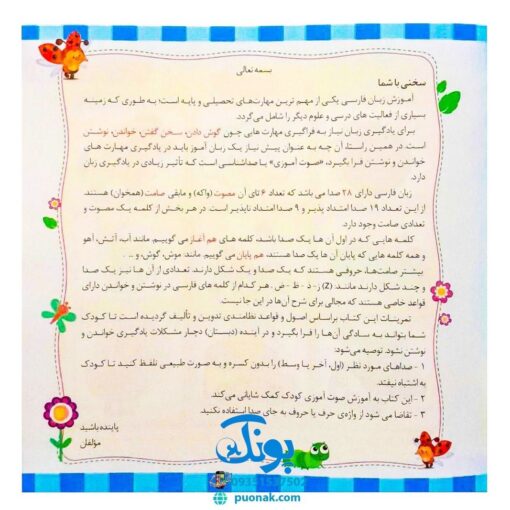 بسمه تعالی
سخنی با شما
آموزش زبان فارسی یکی از مهم ترین مهارت‌های تحصیلی و پایه است؛ به طوری که زمینه
بسیاری از فعالیت های درسی و علوم دیگر را شامل می‌گردد.
برای یادگیری زبان نیاز به فراگیری مهارت هایی چون گوش دادن، سخن گفتن، خواندن، نوشتن
است. در همین راستا، آن چه به عنوان پیش نیاز یک زبان آموز باید در یادگیری مهارت های
خواندن و نوشتن فرا بگیرد، «صوت آموزی» یا صداشناسی است که تأثیر زیادی در یادگیری زبان
دارد.
زبان فارسی دارای ۲۸ صدا می باشد که تعداد ۶ تای آن مصوت (واکه) و مابقی صامت (همخوان) هستند.
از این تعداد ۱۹ صدا امتداد پذیر و ۹ صدا امتداد ناپذیر است. در هر بخش از کلمه یک مصوت و
تعدادی صامت وجود دارد.
کلمه هایی که در اول آن ها یک صدا باشد، کلمه های هم آغاز می گوییم. مانند آب، آتش، آهو
و همه کلمه هایی که پایان آن ها یک صدا هستند، هم پایان می گوییم. مانند موش، گوش، و ...
بیشتر صامت‌ها، حروفی هستند که یک صدا و یک شکل دارند. تعدادی از آن ها نیز یک صدا
و چند شکل دارند مانند: (Z) ز- ذ - ظ - ض. هر کدام از کلمه های فارسی در نوشتن و خواندن دارای
قواعد خاصی هستند که مجالی برای شرح آن‌ها در این جا نیست.
تمرینات این کتاب براساس اصول و قواعد نظامندی تدوین و تألیف گردیده است تا کودک
شما بتواند به سادگی آن‌ها را فرا بگیرد و در آینده (دبستان) دچار مشکلات یادگیری خواندن و
نوشتن نشود. توصیه می‌شود:
۱ - صداهای مورد نظر (اول، آخر یا وسط) را بدون کسره و به صورت طبیعی تلفظ کنید تا کودک
به اشتباه نیفتد.
۲ - این کتاب به آموزش صوت آموزی کودک کمک شایانی می‌کند.
۳ - تقاضا می شود از واژه‌ی حرف یا حروف به جای صدا استفاده نکنید.
پاینده باشید
مؤلفان
پونک
puonak.com